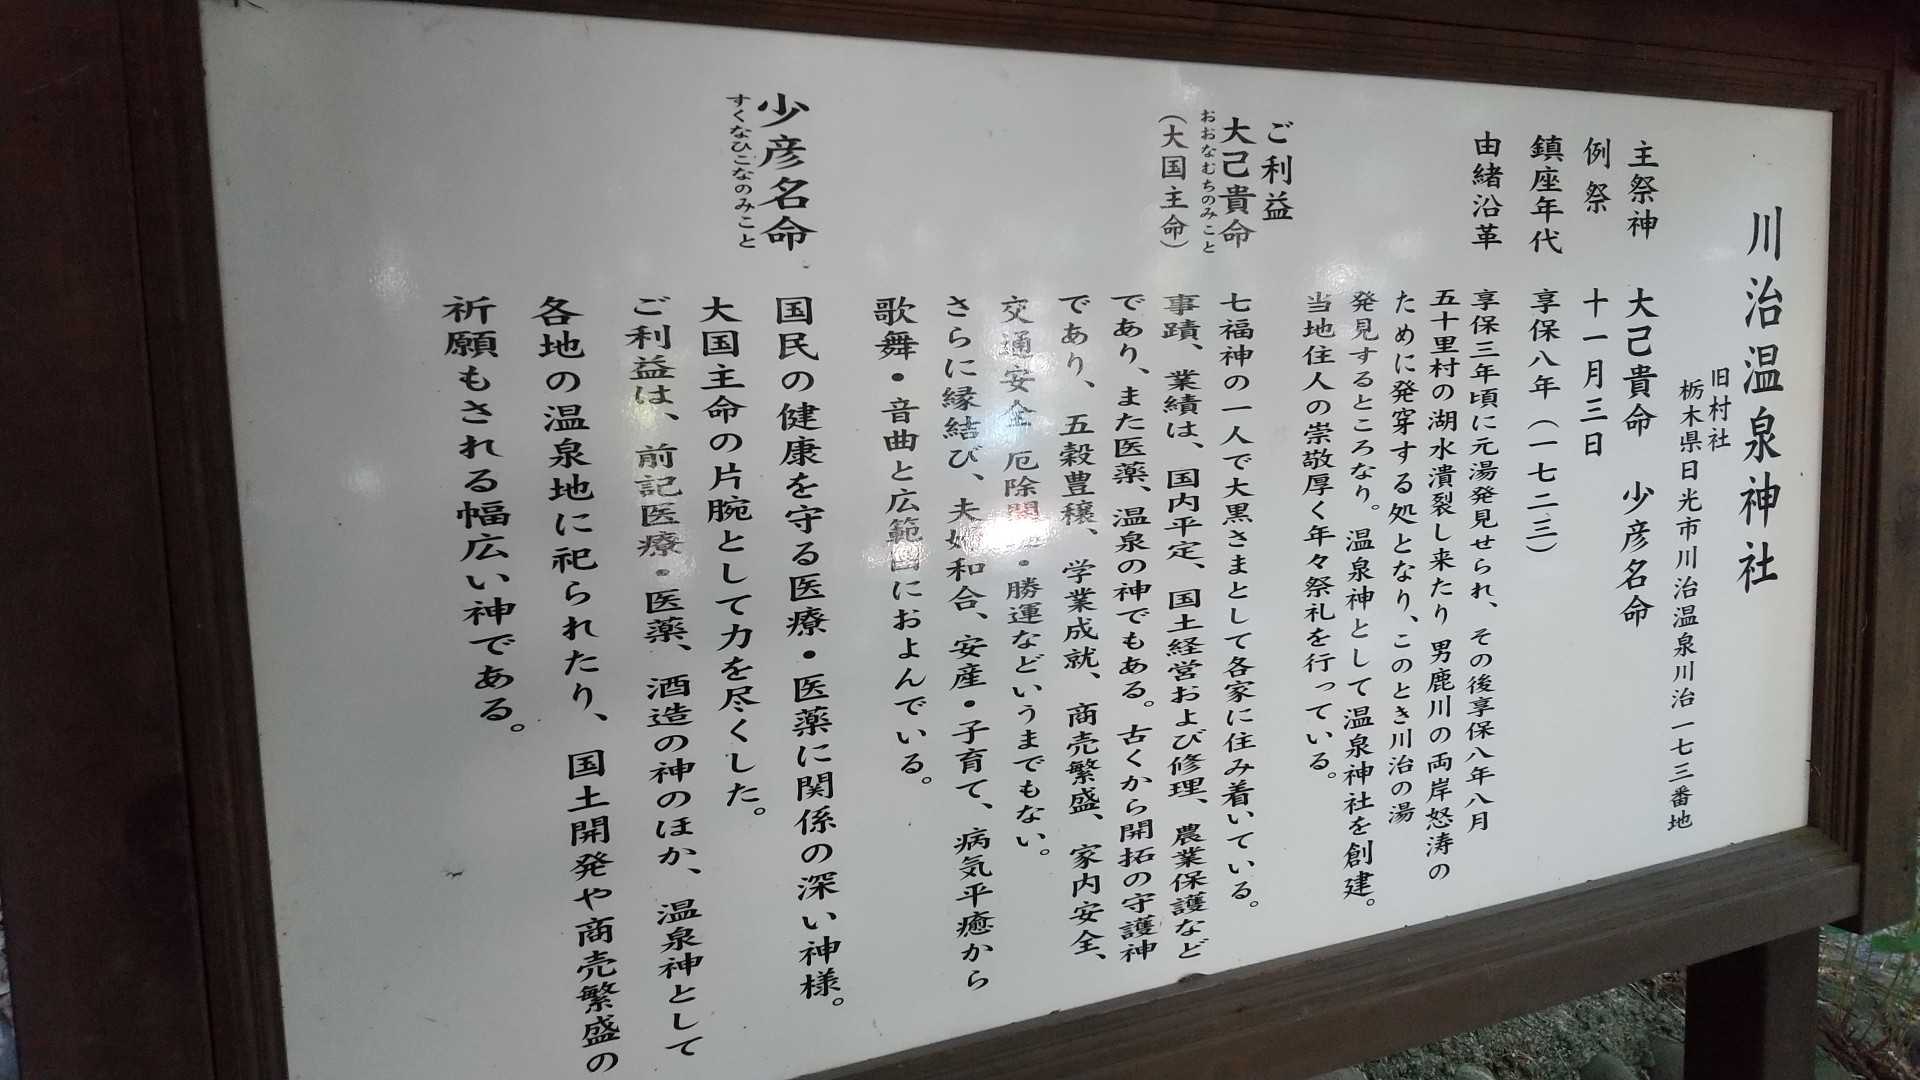 川治温泉神社
旧村社
栃木県日光市川治温泉川治一七三番地
主祭神 大己貴命 少彦名命
例祭 十一月三日
鎮座年代 享保八年(一七二三)
由緒沿革 享保三年頃に元湯発見せられ、その後享保八年八月
五十里村の湖水潰裂し来たり 男鹿川の両岸怒涛の
ために発穿する処となり、このとき川治の湯
発見するところなり。温泉神として温泉神社を創建。
当地住人の崇敬厚く年々祭礼を行っている。
ご利益
大己貴命 七福神の一人で大黒さまとして各家に住み着いている。
おおなむちのみこと
(大国主命) 事蹟、業績は、国内平定、国土経営および修理、農業保護など
であり、また医薬、温泉の神でもある。古くから開拓の守護神
であり、五穀豊穣、学業成就、商売繁盛、家内安全、
交通安全 厄除開・勝運などというまでもない。
さらに縁結び、夫婦和合、安産・子育て、病気平癒から
歌舞・音曲と広範囲におよんでいる。
少彦名命 国民の健康を守る医療・医薬に関係の深い神様。
すくなひこなのみこと
大国主命の片腕として力を尽くした。
ご利益は、前記医療・医薬、酒造の神のほか、温泉神として
各地の温泉地に祀られたり、国土開発や商売繁盛の
祈願もされる幅広い神である。